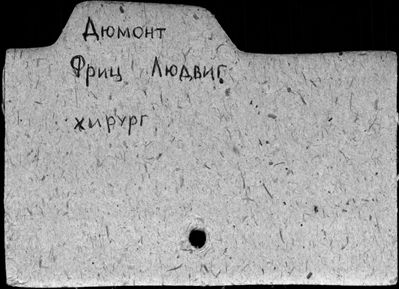 Дюмонт
Фриц Людвиг
хирург